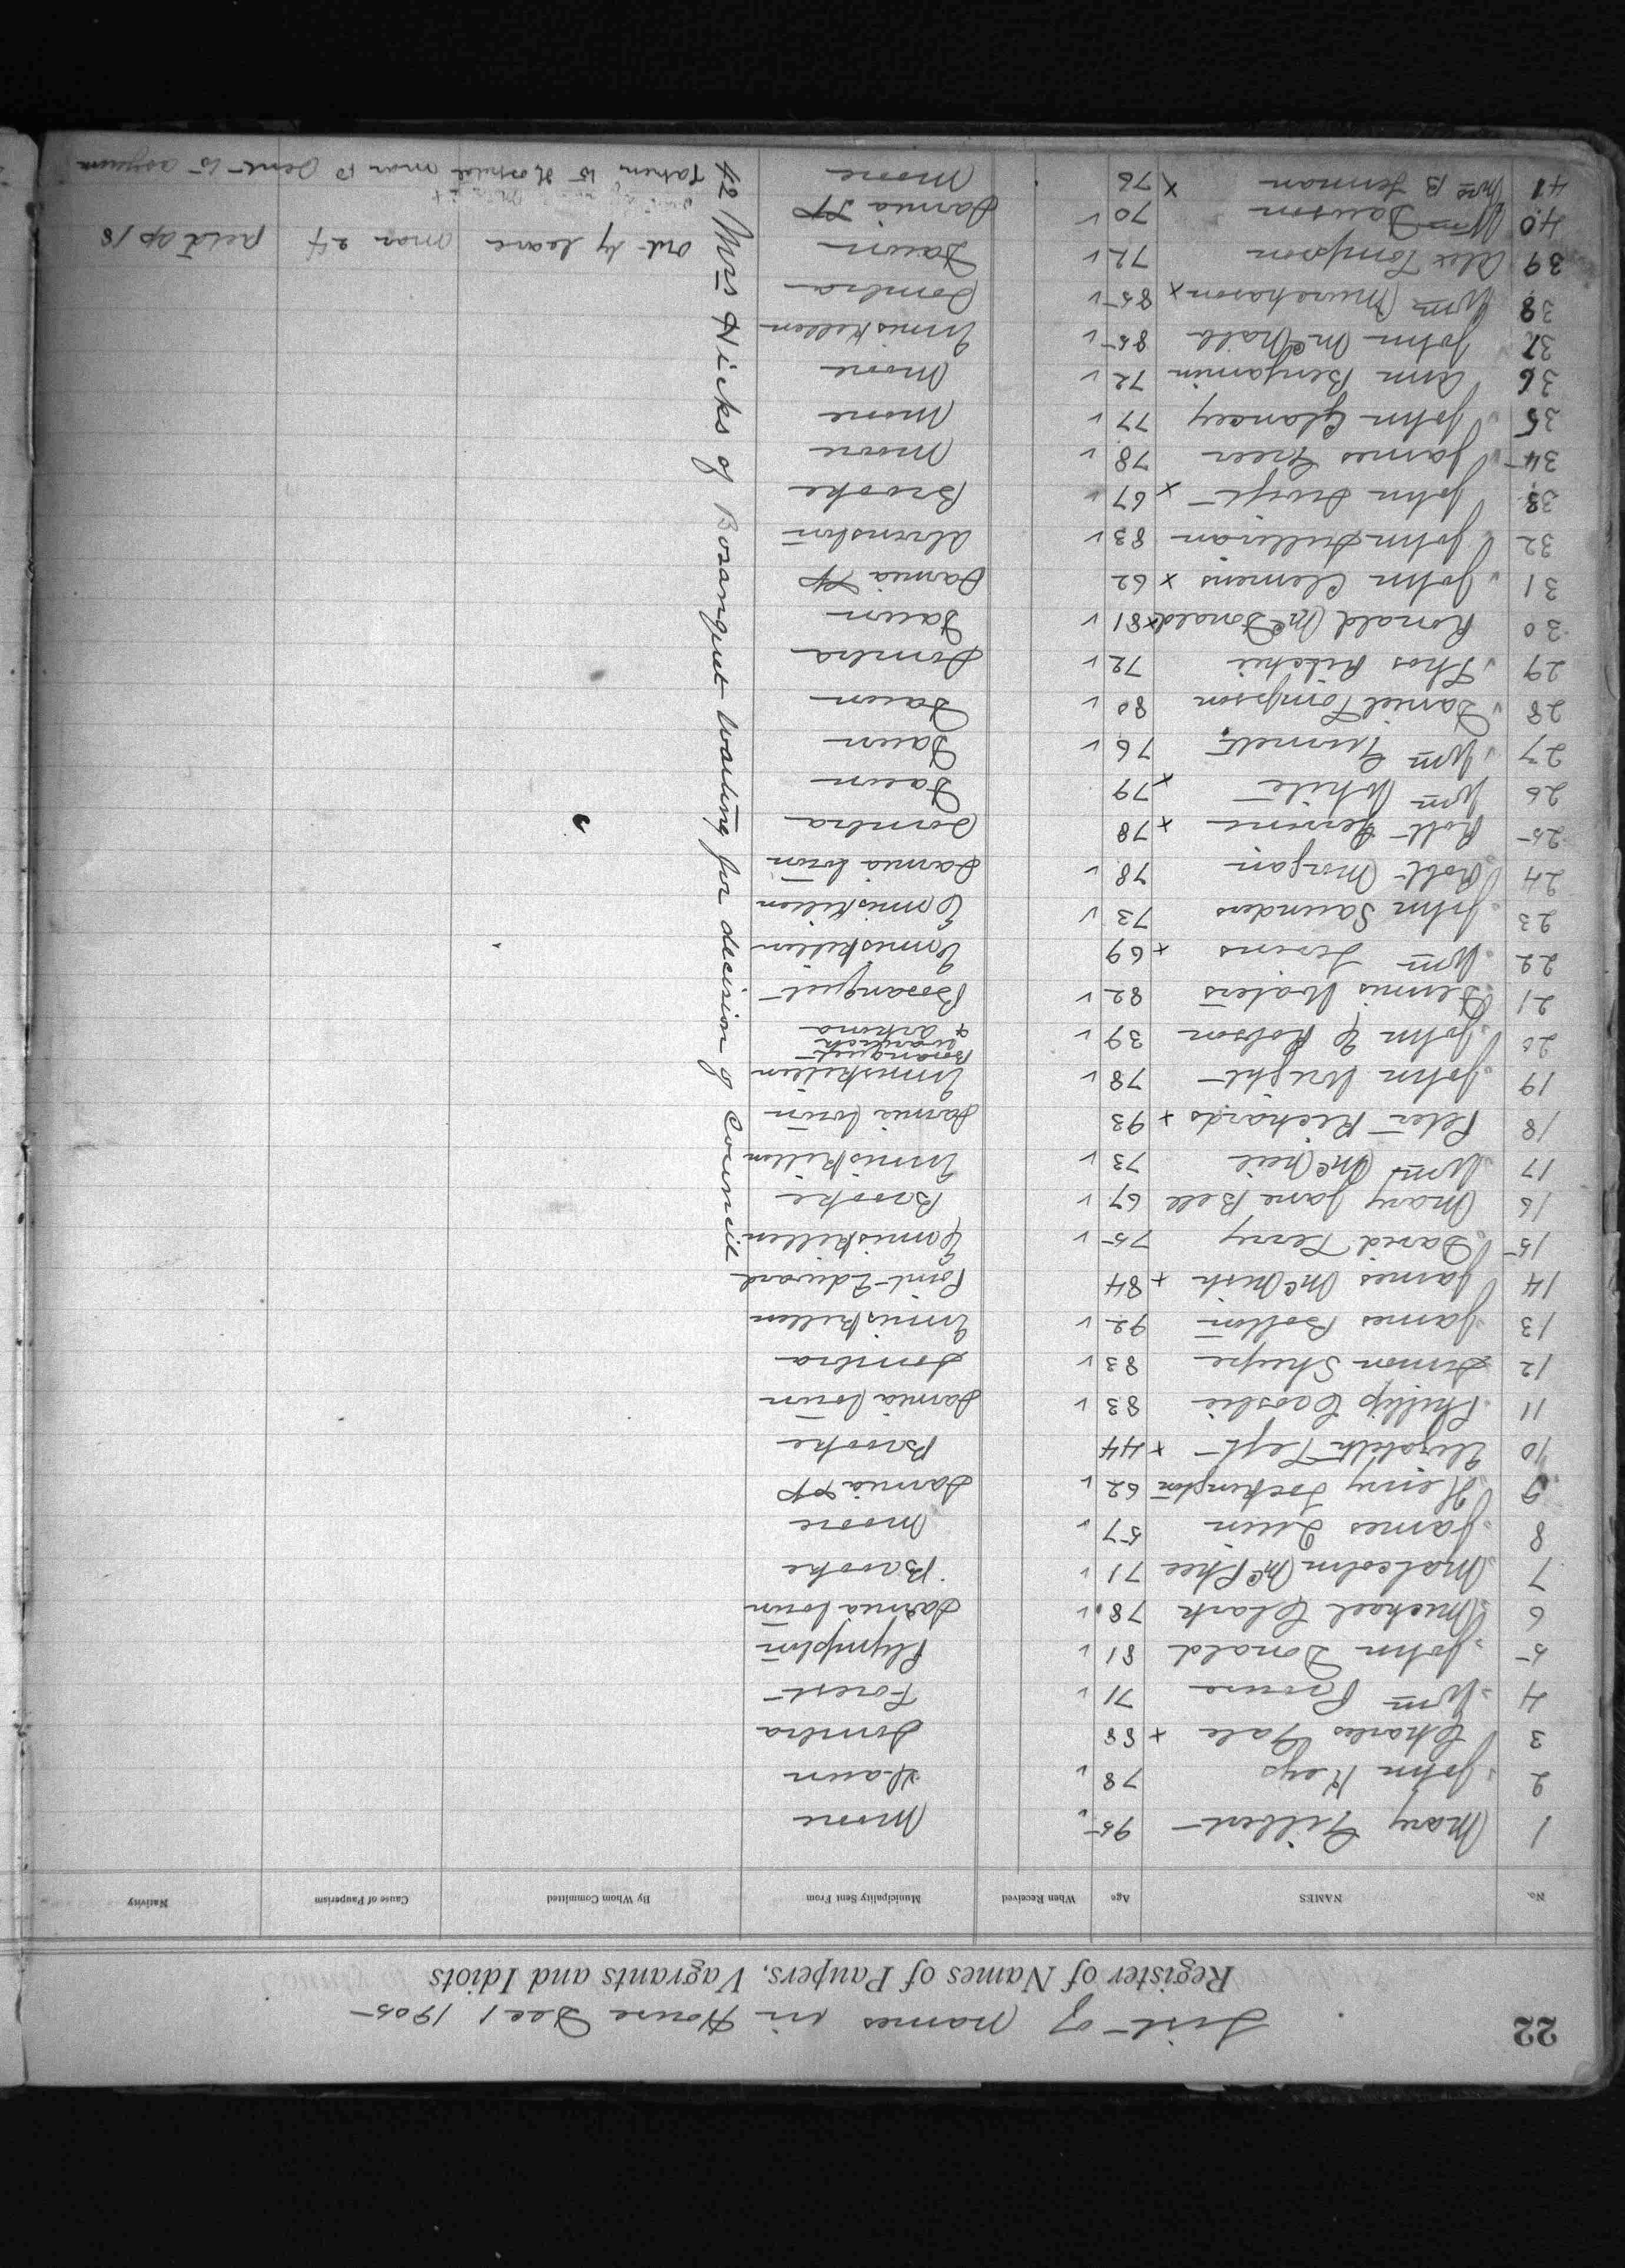 22
List of names in House Dec 1 1905
Register of Names of Paupers, Vagrants and Idiots
No. NAMES Age When Received Municipality Sent From By Whom Committed Cause of Pauperism Nativity
1 Mary Gilbert 95 v Moore
2 John Keys 78 v Dawn
3 Charles Gale x 88 Sombra
4 Wm Prouse 71 v Forest
5 John Donald 81 v Plympton
6 Michael Clark 78 v Sarnia town
7 Malcolm McPhee 71 v Brooke
8 James Quin 57 v Moore
9 Henry Tockington 62 v Sarnia Tp
10 Elizabeth Teft x 44 Brooke
11 Phillip 83 v Sarnia town
12 Simon Shupe 83 v Sombra
13 James Bolton 72 v Inniskillen
14 James McNish x 84 Point Edward
15 David Terry 75 v Enniskillen
16 Mary Jane Bell 67 v Brooke
17 Wm McNeil 73 v Inniskillen
18 Peter Richards x 93 Sarnia town
19 John Wright 78 v Inniskillen
20 John E Robson 39 v Bosanquet Warwick & Arkona
21 Dennis Waters 82 v Bosanquet
22 Wm x 69 Enniskillen
23 John Saunders 73 v Enniskillen
24 Robt Morgan 78 v Sarnia town
25 Robt x 78 Sombra
26 Wm White x 79 Dawn
27 Wm 76 v Dawn
28 Daniel Tompson 80 v Dawn
29 Thos Ritchie 72 v Sombra
30 Ronald McDonald x 81 v Dawn
31 John Clemens x 62 Sarnia Tp
32 John Sullivan 83 v Alvinston
33 John Swift x 67 v Brooke
34 James Greer 78 v Moore
35 John Glancey 77 v Moore
36 Ann Benjamin 72 v Moore
37 John McNabb 85 v Inniskillen
38 Wm Murchason x 85 v Sombra
39 Alex Tompson 72 v Dawn out by leave mar 24 retd ap 18
40 Dawson 70 v Sarnia Tp
41 Mrs B x 76 Moore taken to Hospital mar 10 sent to asylum
42 Mrs Hicks of Bosanquet waiting for decision of Council